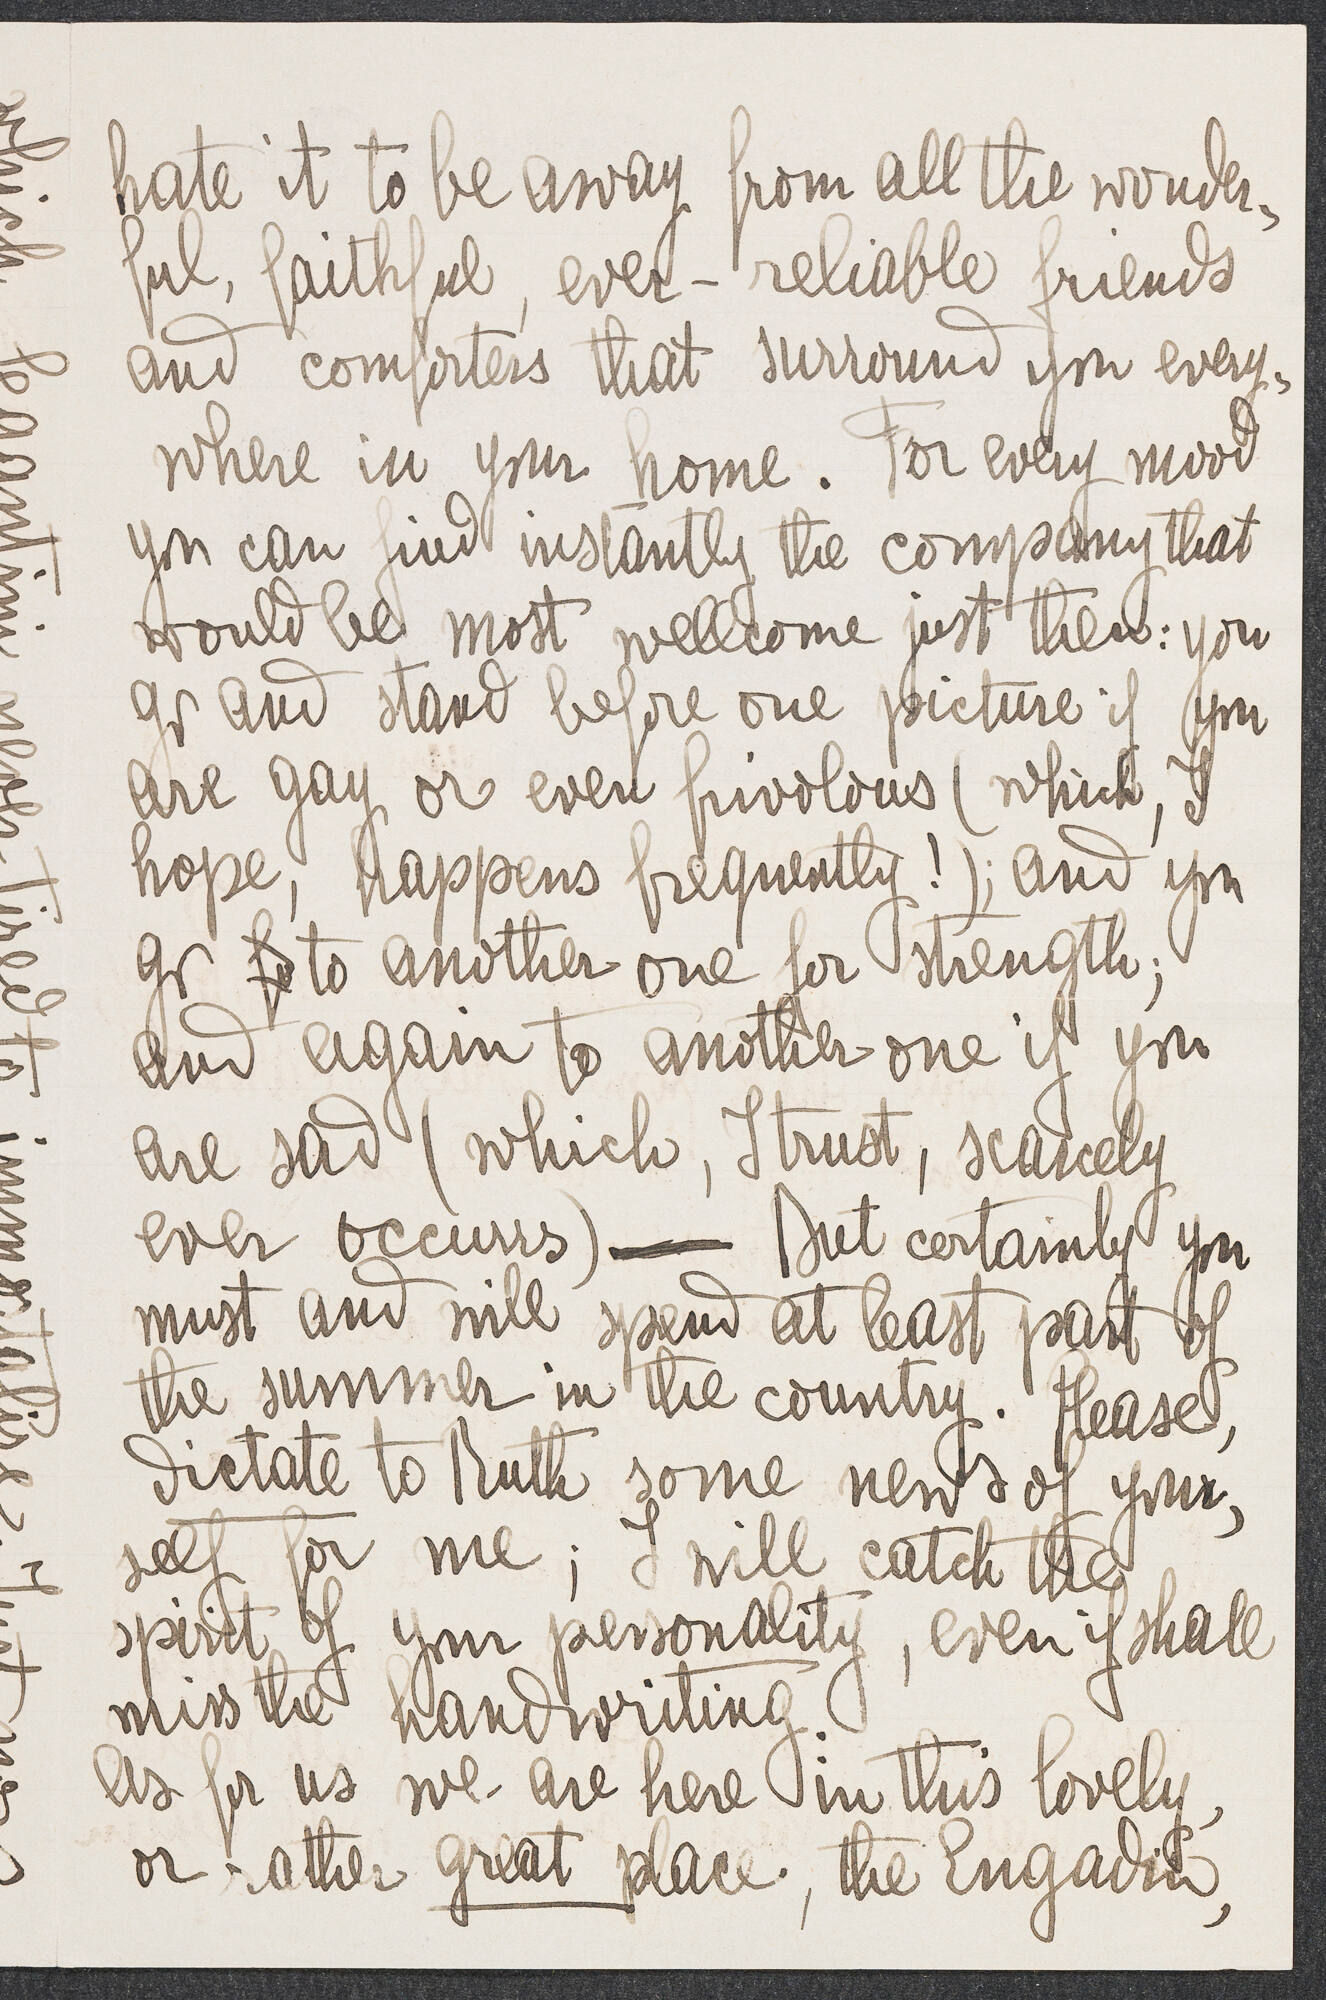 hate it to be away from all the wonder-
ful, faithful, ever-reliable friends
and comforters that surround you every-
where in your home. For every mood
you can find instantly the company that
would be most wellcome just then: you
go and stand before one picture if you
are gay or even frivolous (which, I
hope, happens frequently!); and you
go to another one for strength;
and again to another one if you
are sad (which, I trust, scarcely
ever occurrs) — But certainly you
must and will spend at least part of
the summer in the country. Please,
dictate to Ruth some news of your-
self for me; I will catch the
spirit of your personality, even if shall
miss the handwriting.
As for us we are here in this lovely,
or rather great place, the Engadin,
which
to immortalize